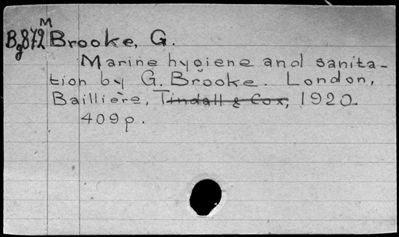 M
Bg872 Brooke, G.
Marine hygiene and sanita-
tion by G. Brooke. London,
Baillière, Tindall & Cox, 1920.
409p.